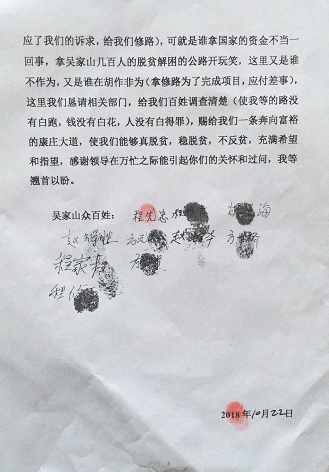 应了我们的诉求，给我们修路），可就是谁拿国家的资金不当一
回事，拿吴家山几百人的脱贫解困的公路开玩笑，这里又是谁
不作为，又是谁在胡作非为（拿修路为了完成项目，应付差事），
这里我们恳请相关部门，给我们百姓调查清楚（使我等的路没
有白跑，钱没有白花，人没有白得罪），赐给我们一条奔向富裕
的康庄大道，使我们能够真脱贫，稳脱贫，不反贫，充满希望
和指望，感谢领导在万忙之际能引起你们的关怀和过问，我等
翘首以盼。
吴家山众百姓：程先忠
2018年10月22日